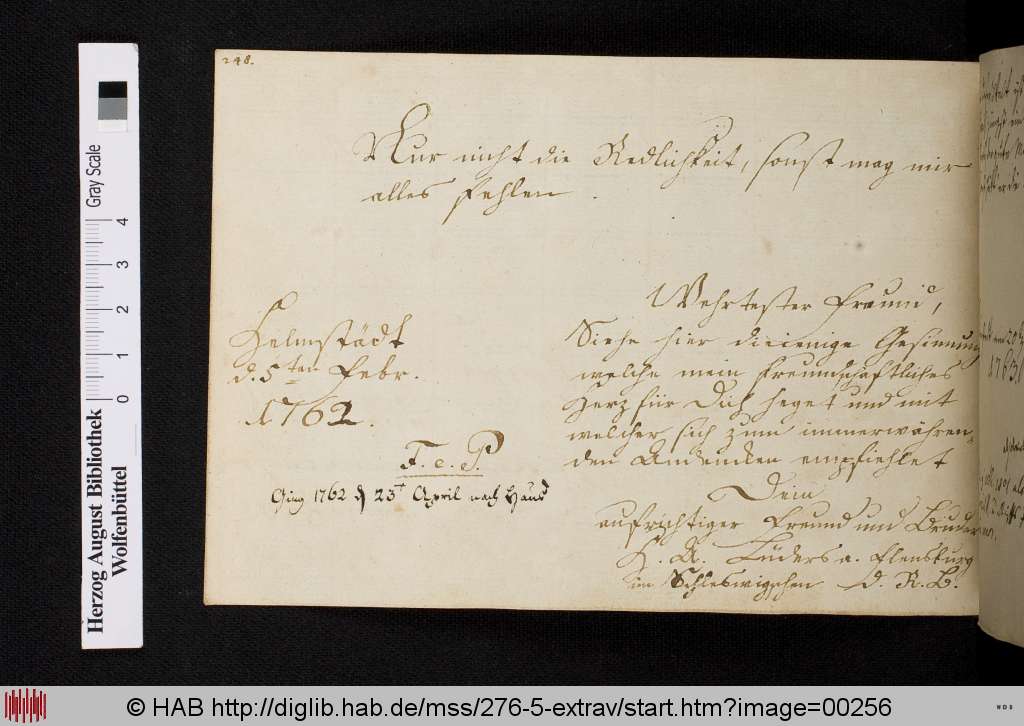 248.
Nur nicht die Redlichkeit, sonst mag mir
alles fehlen.
Wehrtester Freund,
Siehe hier diejenige Gesinnung
welche mein freundschaftliches
Herz für Dich heget und mit
welcher sich zum immerwähren-
den Andencken empfiehlet
Dein
aufrichtiger Freund und Bruder
H. A. Lüders a. Flensburg
im Schleswigschen d. R. B.
Helmstädt
d. 5ten Febr.
1762.
F. c. P.
Ging 1762 d 23t April nach Haus
Herzog August Bibliothek
Wolfenbüttel
Gray Scale
0 1 2 3 4
© HAB http://diglib.hab.de/mss/276-5-extrav/start.htm?image=00256
WDB